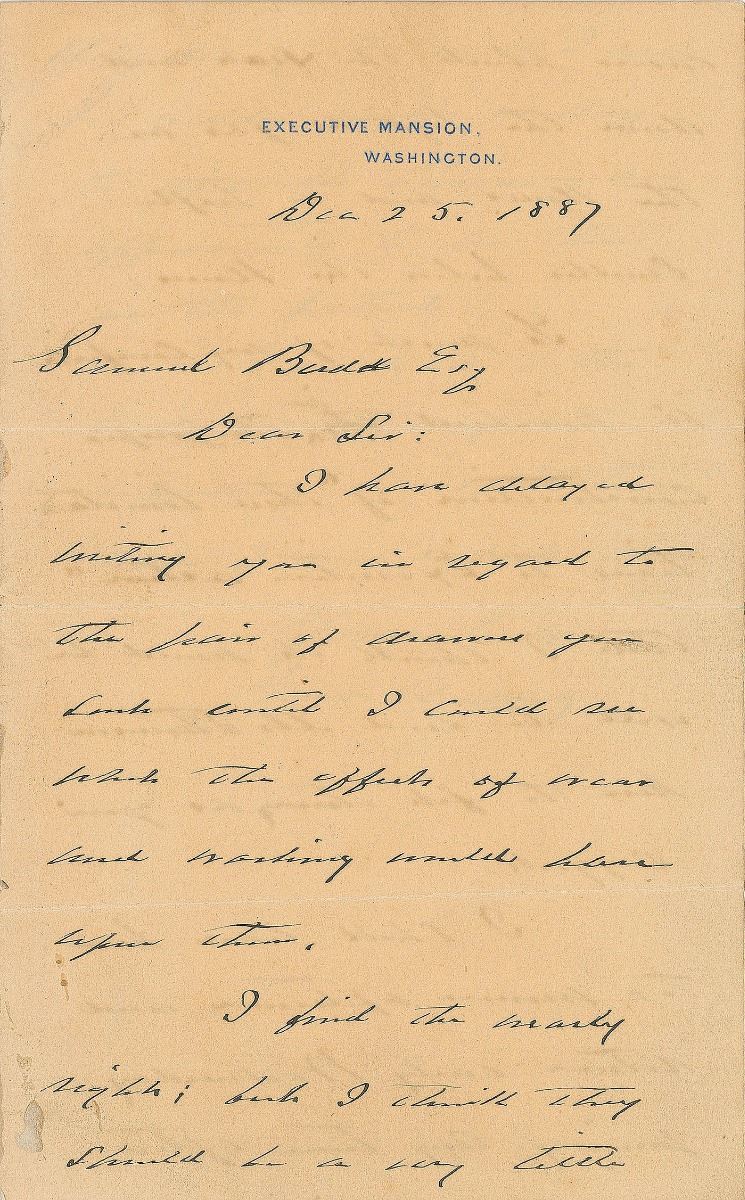 EXECUTIVE MANSION,
WASHINGTON.
Dec 25. 1887
Samuel Budd Esq
Dear Sir:
I have delayed
writing you in regard to
the pair of drawers you
sent until I could see
what the effects of wear
and washing would have
upon them.
I find the nearly
right; but I think they
should be a very little